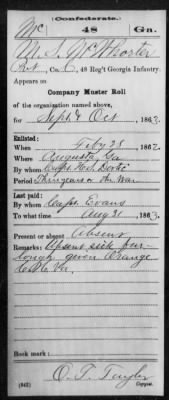 Confederate.
Mc 48 Ga.
M. S. McWhorter
Pvt, Co. , 48 Reg't Georgia Infantry.
Appears on
Company Muster Roll
of the organization named above,
for Sept & Oct , 1863.
Enlisted:
When Feby 28 , 1862.
Where Augusta, Ga
By whom Capt.
Period Three years or the War
Last paid:
By whom Capt. Evans
To what time Aug 31 , 1863.
Present or absent Absent
Remarks: Absent sick fur-
lough given Orange
C. H. Va.
Book mark:
(642) O. T. Taylor
Copyist.